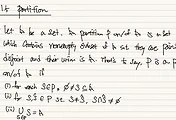 1.5 partition
Let A be a set. A partition P on/of A is a set
which contains nonempty subset of A s.t. they are pairwise
disjoint and their union is A. That's to say, P is a partition
on/of A if
(i) for each S∈P, ∅≠S⊆A
(ii) for S,S̃∈P s.t. S≠S̃, S∩S̃=∅
(iii) ∪ S = A
S∈P